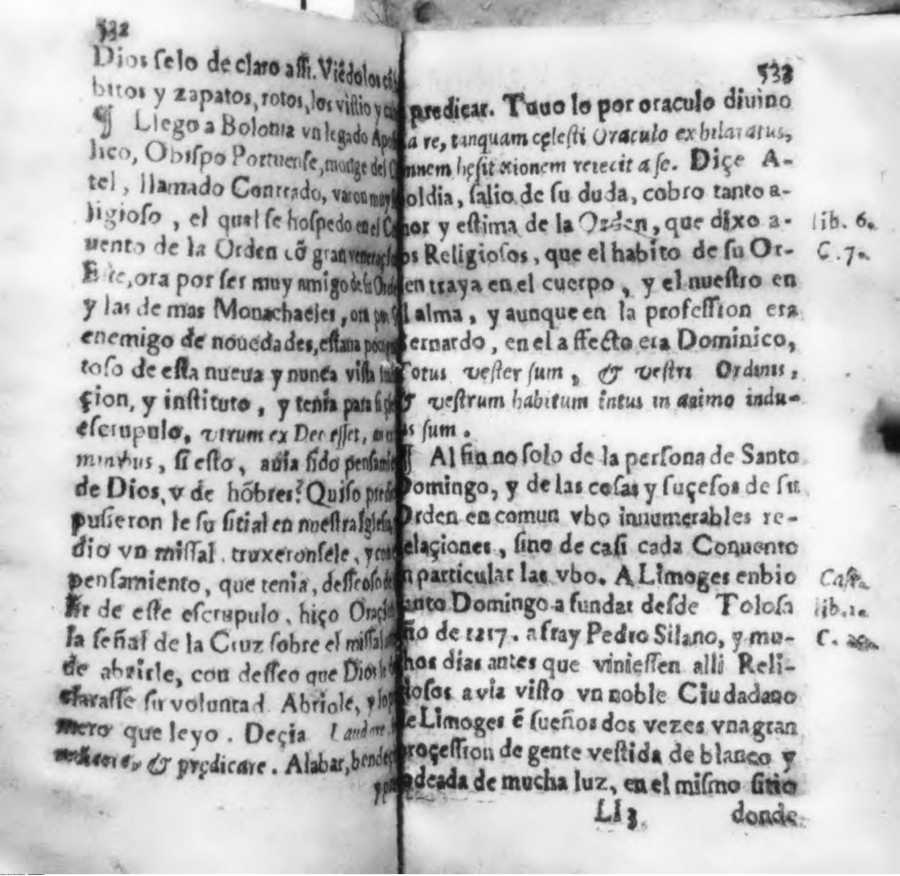 532
Dios ſelo de claro aſſi. Viẽdolos
bitos y zapatos, rotos, los viſtio y
¶ Llego a Bolonia vn legado
lico, Obiſpo Portuenſe, monge del
tel, llamado Conrrado, varon muy
ligioſo, el qual ſe hoſpedo en el
uento de la Orden cõ gran
Eſte, ora por ſer muy amigo de ſu
y las de mas Monachales, ora por
enemigo de nouedades, eſtaua
toſo de eſta nueua y nunca viſta
çion, y inſtituto, y tenia para ſi
eſcrupulo, vtrum ex Deo eſſet,
minibus, ſi eſto, auia ſido
de Dios, v de hõbres? Quiſo
puſieron le ſu ſitial en nueſtra Igleſia,
dio vn miſſal. truxeronſele, y
penſamiento, que tenia, deſſeoſo
lir de eſte eſcrupulo, hiço
la ſeñal de la Cruz ſobre el miſſal
de abrirle, con deſſeo que Dios le
claraſſe ſu voluntad. Abriole, y lo
mero que leyo. Deçia Laudare,
& prędicare. Alabar,
533
predicar. Tuuo lo por oraculo diuino
a re, tanquam cęleſti Oraculo exhilaratus,
mnem hęſitationem reiecit a ſe. Diçe A-
oldia, ſalio de ſu duda, cobro tanto a-
mor y eſtima de la Orden, que dixo a-
os Religioſos, que el habito de ſu Or-
en traya en el cuerpo, y el nueſtro en
l alma, y aunque en la profeſſion era
Bernardo, en el affecto era Dominico,
Totus veſter ſum, & veſtri Ordinis,
& veſtrum habitum intus in animo indu-
us ſum.
¶ Al fin no ſolo de la perſona de Santo
Domingo, y de las coſas y ſuçeſos de ſu
Orden en comun vbo innumerables re-
elaçiones, ſino de caſi cada Conuento
n particular las vbo. A Limoges enbio
anto Domingo a fundar deſde Toloſa
ño de 1217. a fray Pedro Silano, y mu-
hos dias antes que vinieſſen alli Reli-
ioſos auia viſto vn noble Ciudadano
e Limoges ẽ ſueños dos vezes vna gran
proçeſſion de gente veſtida de blanco y
odeada de mucha luz, en el miſmo ſitio
Ll 3. donde
lib. 6.
C. 7.
Caſt.
lib. 1.
C.